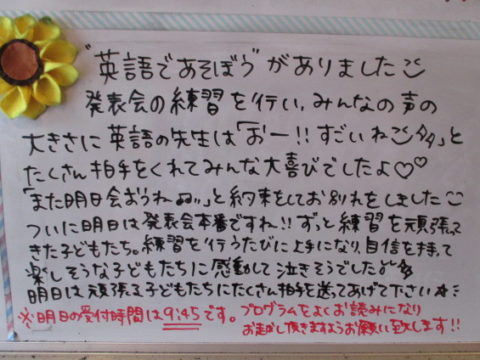 "英語であそぼう"がありました
発表会の練習を行い、みんなの声の
大きさに英語の先生は「おー!!すごいね」と
たくさん拍手をくれてみんな大喜びでしたよ♡♡
「また明日会おうねぇ。」と約束をしてお別れをしました
ついに明日は発表会本番ですね!!ずっと練習を頑張って
きた子どもたち。練習を行うたびに上手になり、自信を持って
楽しそうな子どもたちに感動して泣きそうでした
明日は頑張る子どもたちにたくさん拍手を送ってあげて下さい
※明日の受付時間は9:45です。プログラムをよくお読みになり
お越し頂きますようお願い致します!!